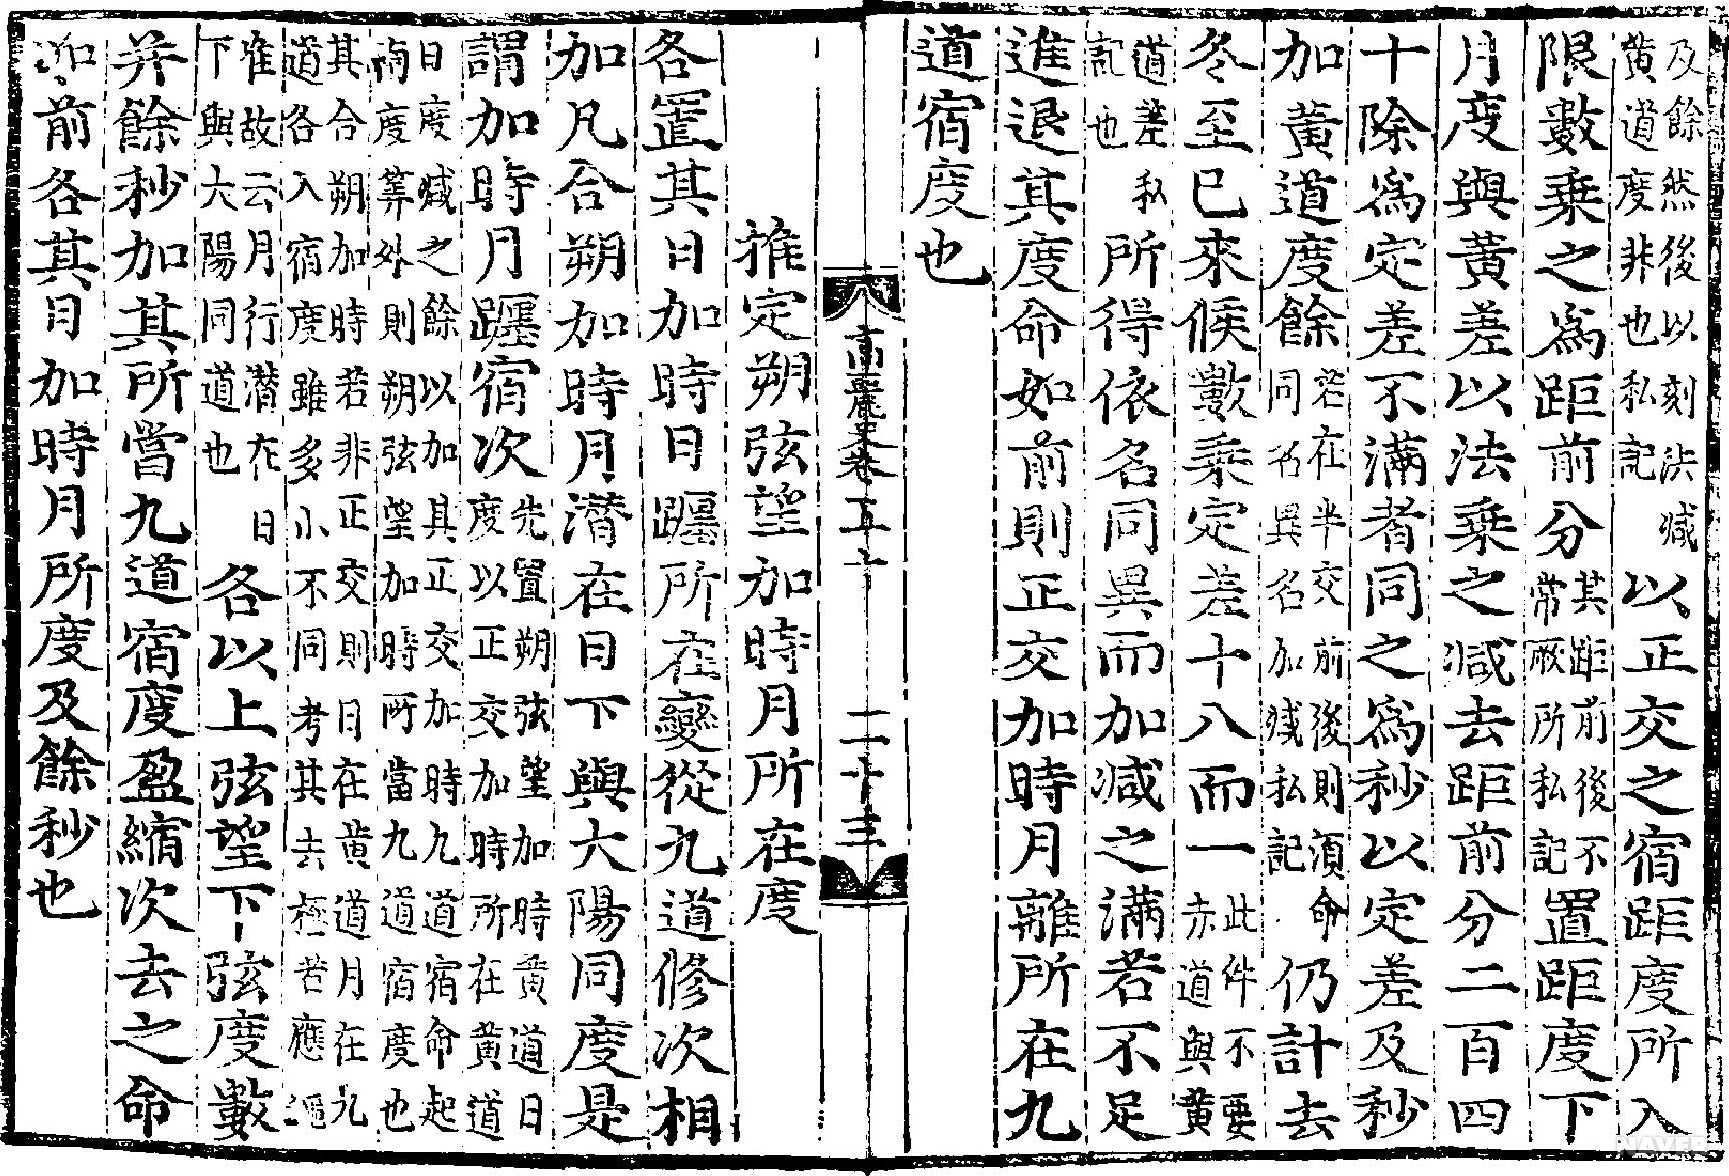 及餘然後以刻法减
黄道度非也私記
以正交之宿距度所入
限數乗之爲距前分
其距前後不
常厥所私記
置距度下
月度與黄差以法乗之减去距前分二百四
十除爲定差不滿者同之爲秒以定差及秒
加黄道度餘
若在半交前後則須命
同名異名加减私記
仍計去
冬至已來候數乗定差十八而一
此件不要
赤道與黄
道差私
記也
所得依名同異而加减之滿若不足
進退其度命如前則正交加時月離所在九
道宿度也
高麗史卷五十
二十三
推定朔弦望加時月所在度
各置其日加時日躔所在變從九道修次相
加凡合朔加時月潜在日下與大陽同度是
謂加時月躔宿次
先置朔弦望加時黄道日
度以正交加時所在黄道
日度减之餘以加其正交加時九道宿命起
南度等外則朔弦望加時所當九道宿度也
其合朔加時若非正交則日在黄道月在九
道各入宿度雖多小不同考其去極若應繩
准故云月行潜在日
下與大陽同道也
各以上弦望下弦度數
并餘秒加其所當九道宿度盈縮次去之命
如前各其日加時月所度及餘秒也
NAVER